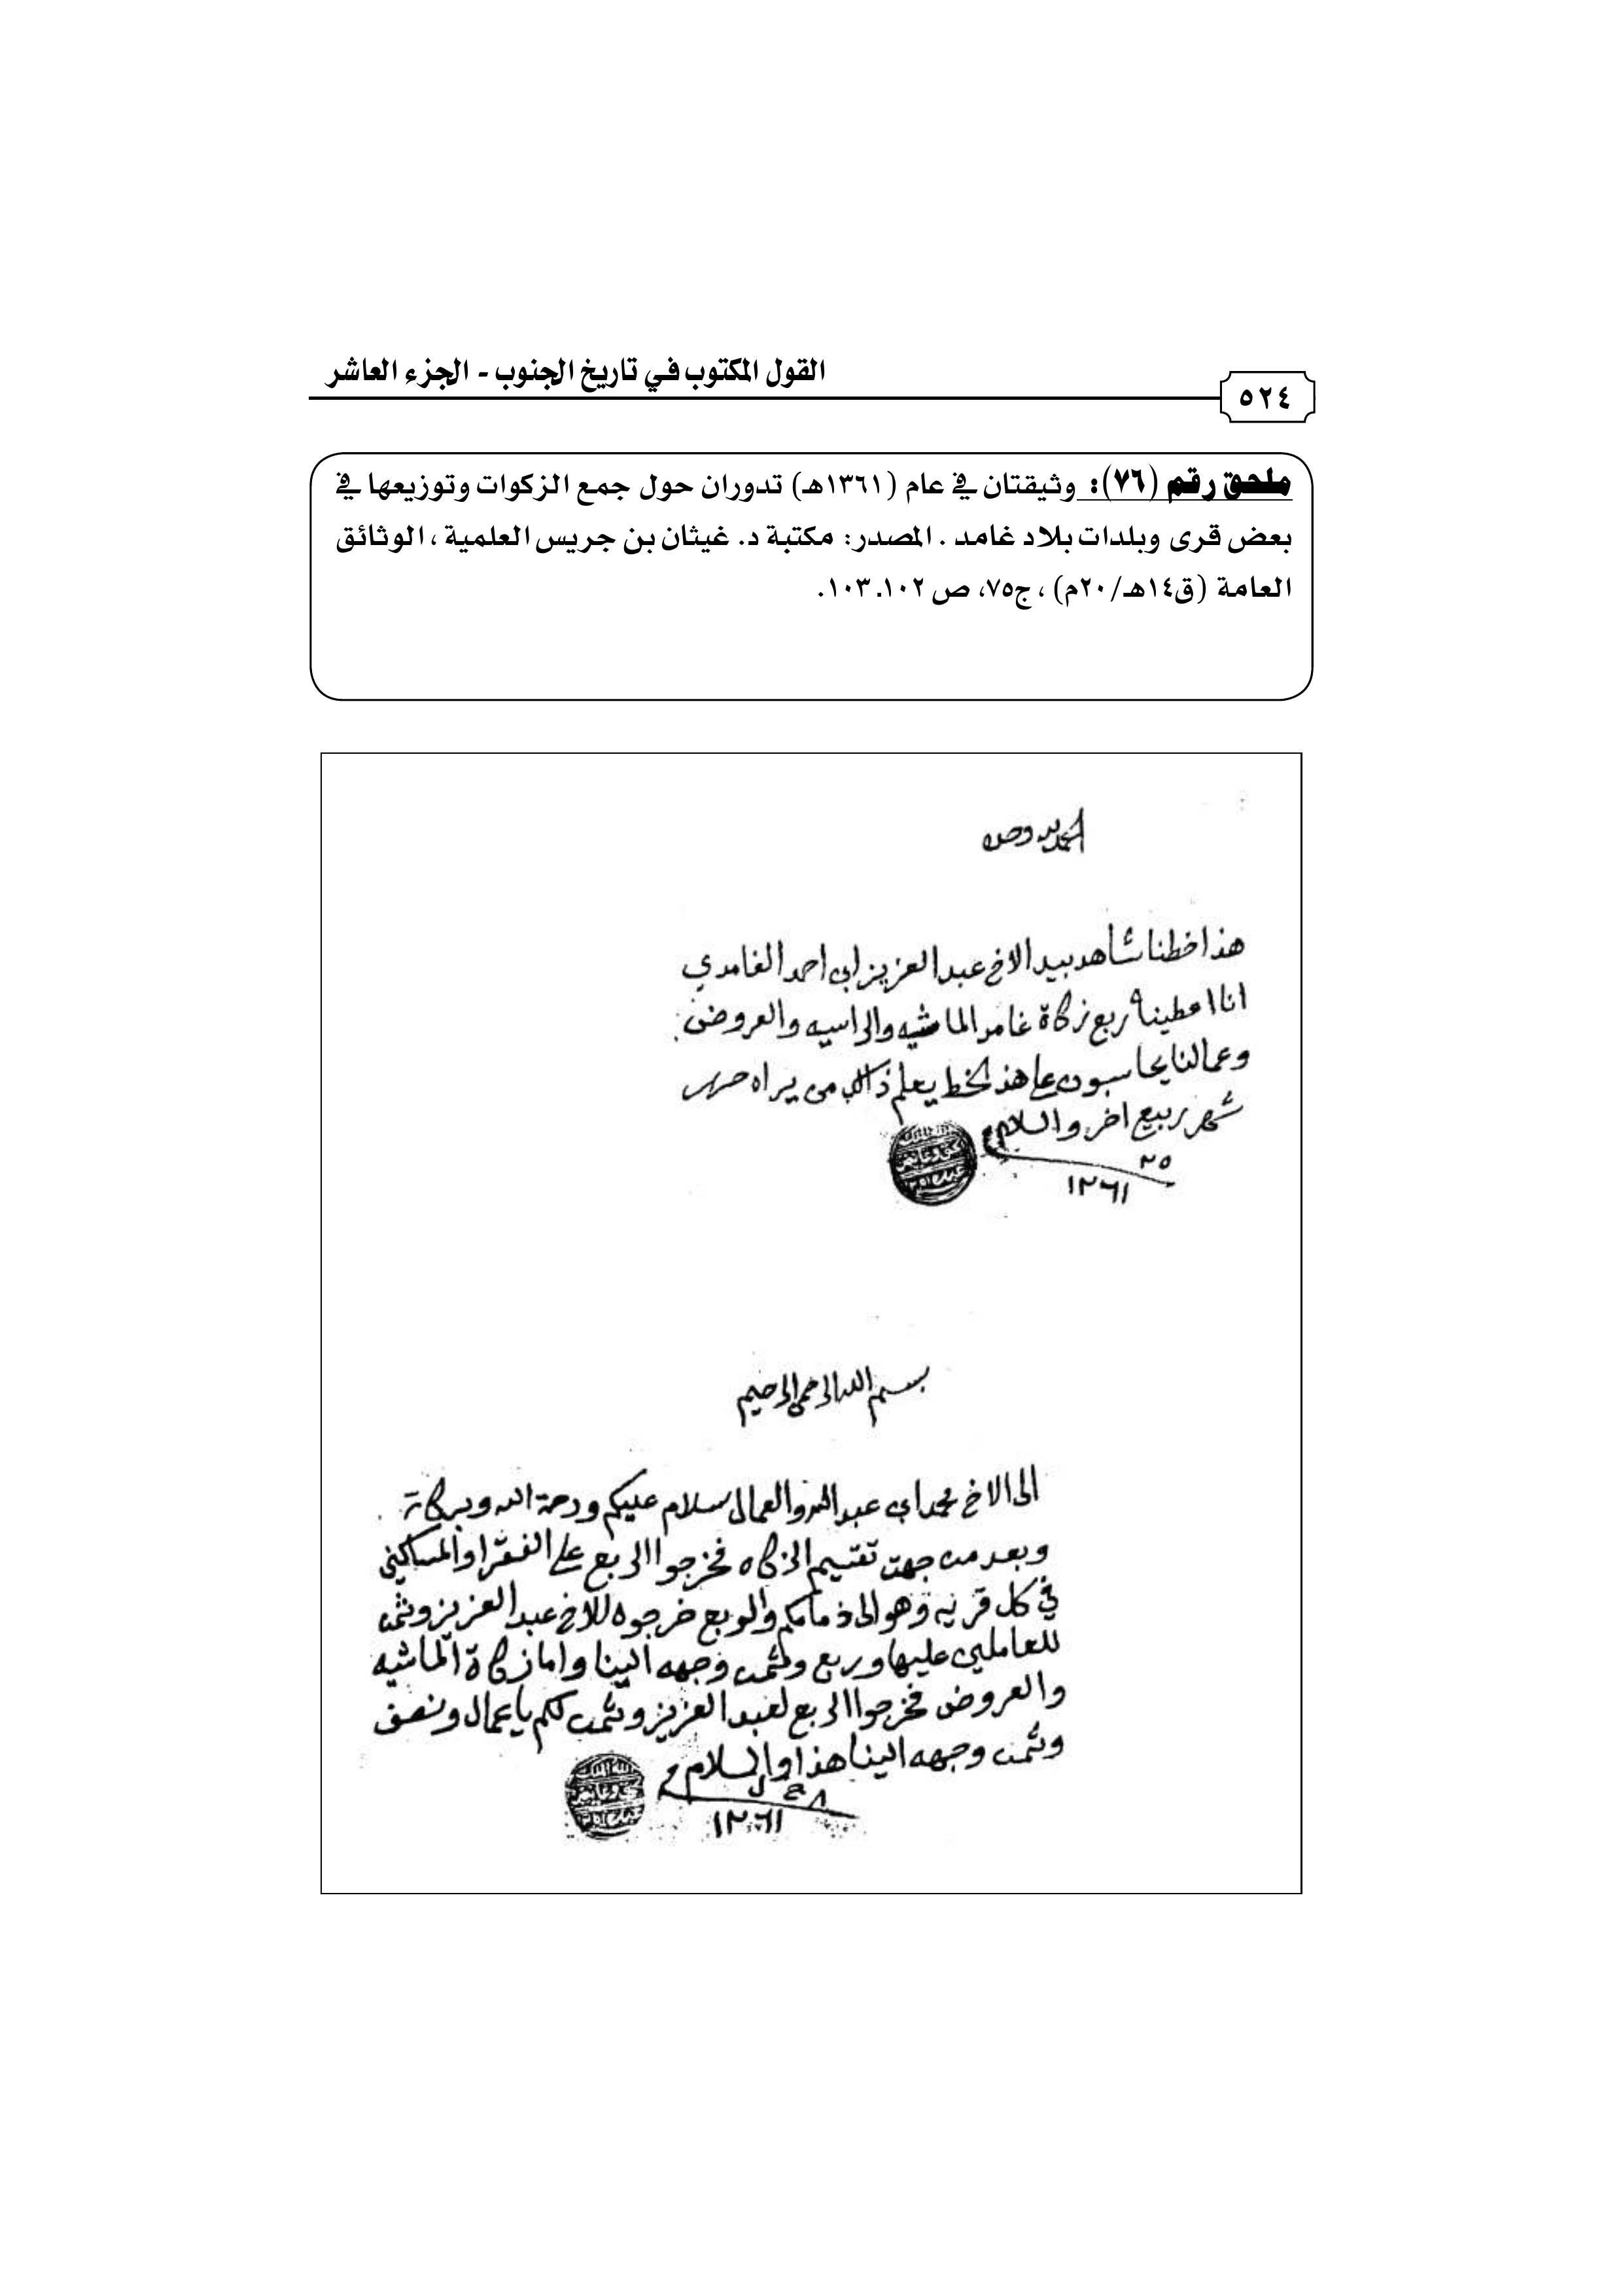 القول المكتوب في تاريخ الجنوب - الجزء العاشر
٥٢٤
ملحق رقم (٧٦): وثيقتان في عام (١٣٦١هـ) تدوران حول جمع الزكوات وتوزيعها في
بعض قرى وبلدات بلاد غامد . المصدر: مكتبة د. غيثان بن جريس العلمية ، الوثائق
العامة (ق١٤هـ/٢٠م) ، ج٧٥، ص ١٠٢. ١٠٣.
الحمد لله وحده
هذا خطنا شاهد بيد الاخ عبد العزيز ابن احمد الغامدي
انا اعطيناه ربع زكاة غامد الماشيه والراسيه والعروض
وعمالنا يحاسبون على هذ الخط يعلم ذالك من يراه حرر
شهر ربيع اخر والسلام
٢٥
١٣٦١
بسم الله الرحمن الرحيم
الى الاخ محمد ابن عبد الله والعمال سلام عليكم ورحمة الله وبركاته
وبعد من جهت تقسيم الزكاه فخرجوا الربع على الفقرا والمساكين
في كل قريه وهو الى ذمامكم والربع خرجوه للاخ عبد العزيز وثمن
للعاملين عليها وربع وثمن وجهه الينا واما زكاة الماشيه
والعروض فخرجوا الربع لعبد العزيز وثمن لكم يا عمال ونصف
وثمن وجهه الينا هذا والسلام
٨ ج
١٣٦١